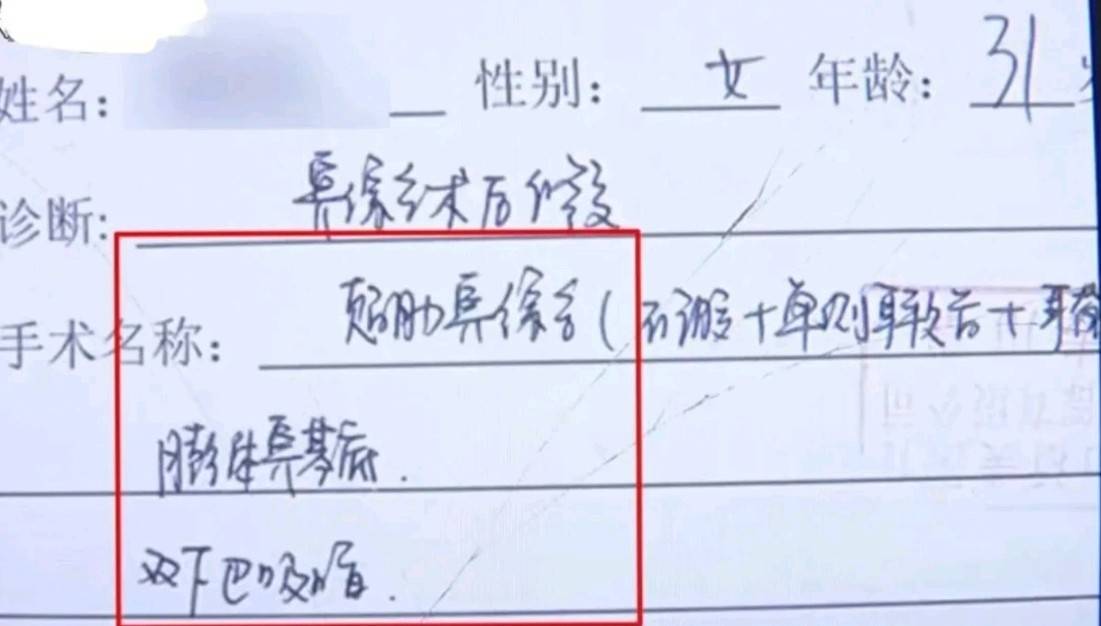 姓名： 性别： 女 年龄： 31岁
诊断: 鼻综合术后修复
手术名称： 肋鼻综合（ +单侧耳软骨+耳
膨体鼻基底.
双下巴吸脂.